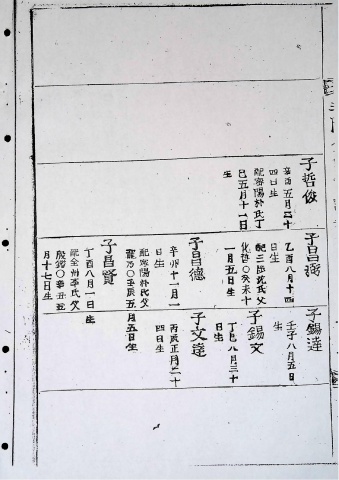 子哲俊
辛酉五月二十
四日生
配密陽朴氏丁
巳五月十二日
生
子昌
乙酉八月十四
日生
配三陟沈氏父
化哲〇癸未十
一月五日生
子昌德
辛卯十一月一
日生
配密陽朴氏父
龍乃〇壬辰五
月五日生
子昌賢
丁酉八月一日
生
配全州李氏父
殷鎬〇辛丑五
月十七日生
子錫達
壬子八月五日
生
子錫文
丁巳八月三十
日生
子文達
丙辰正月二十
四日生